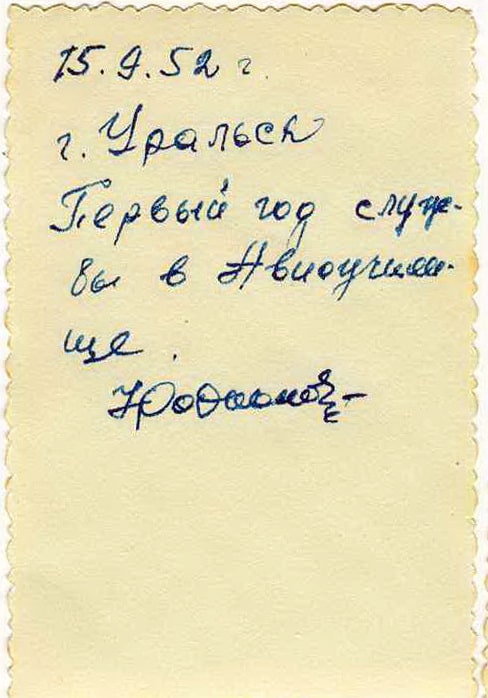 15.9.52 г.
г. Уральск
Первый год служ-
бы в Авиаучили-
ще.